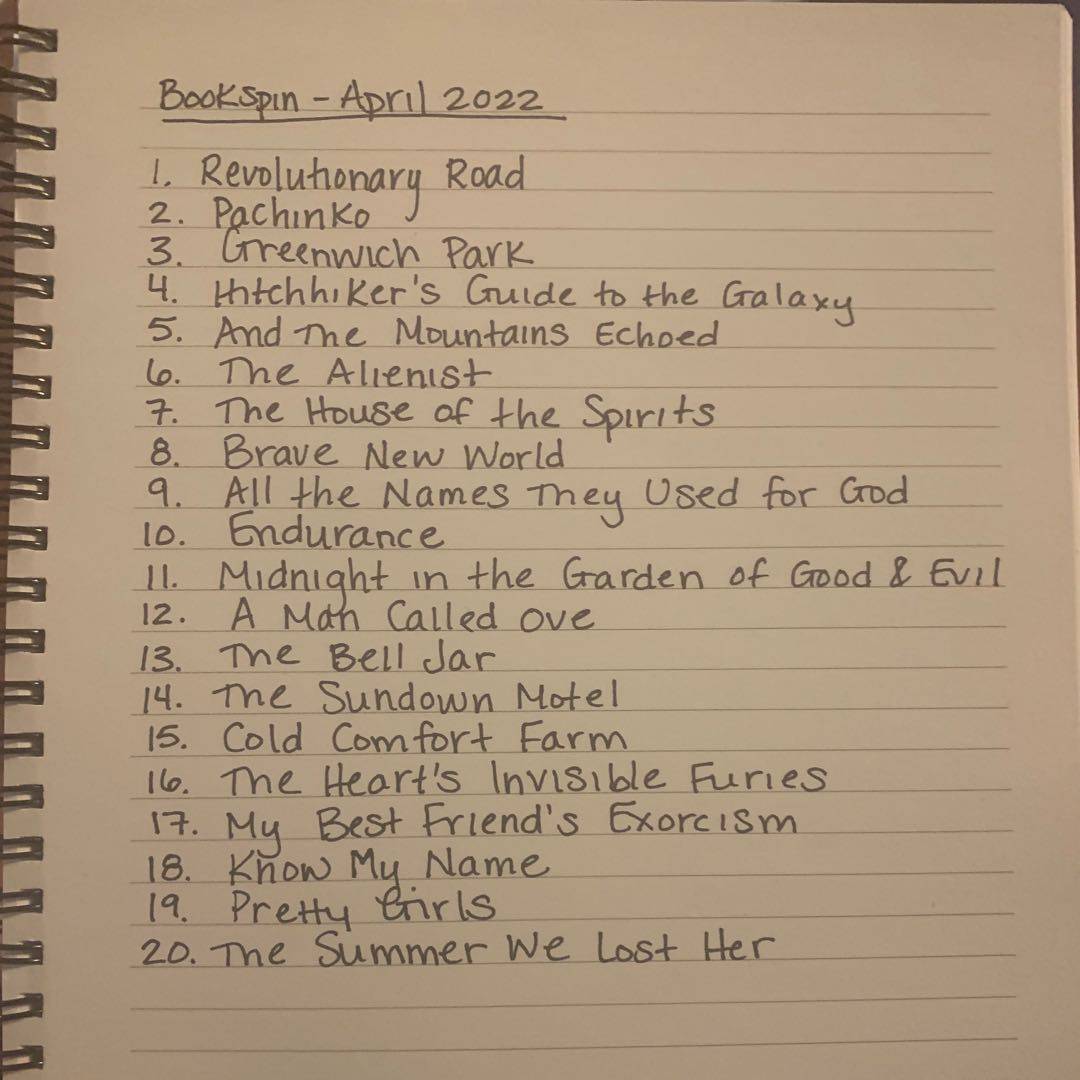 Bookspin - April 2022
1. Revolutionary Road
2. Pachinko
3. Greenwich Park
4. Hitchhiker's Guide to the Galaxy
5. And The Mountains Echoed
6. The Alienist
7. The House of the Spirits
8. Brave New World
9. All the Names They Used for God
10. Endurance
11. Midnight in the Garden of Good & Evil
12. A Man Called Ove
13. The Bell Jar
14. The Sundown Motel
15. Cold Comfort Farm
16. The Heart's Invisible Furies
17. My Best Friend's Exorcism
18. Know My Name
19. Pretty Girls
20. The Summer We Lost Her